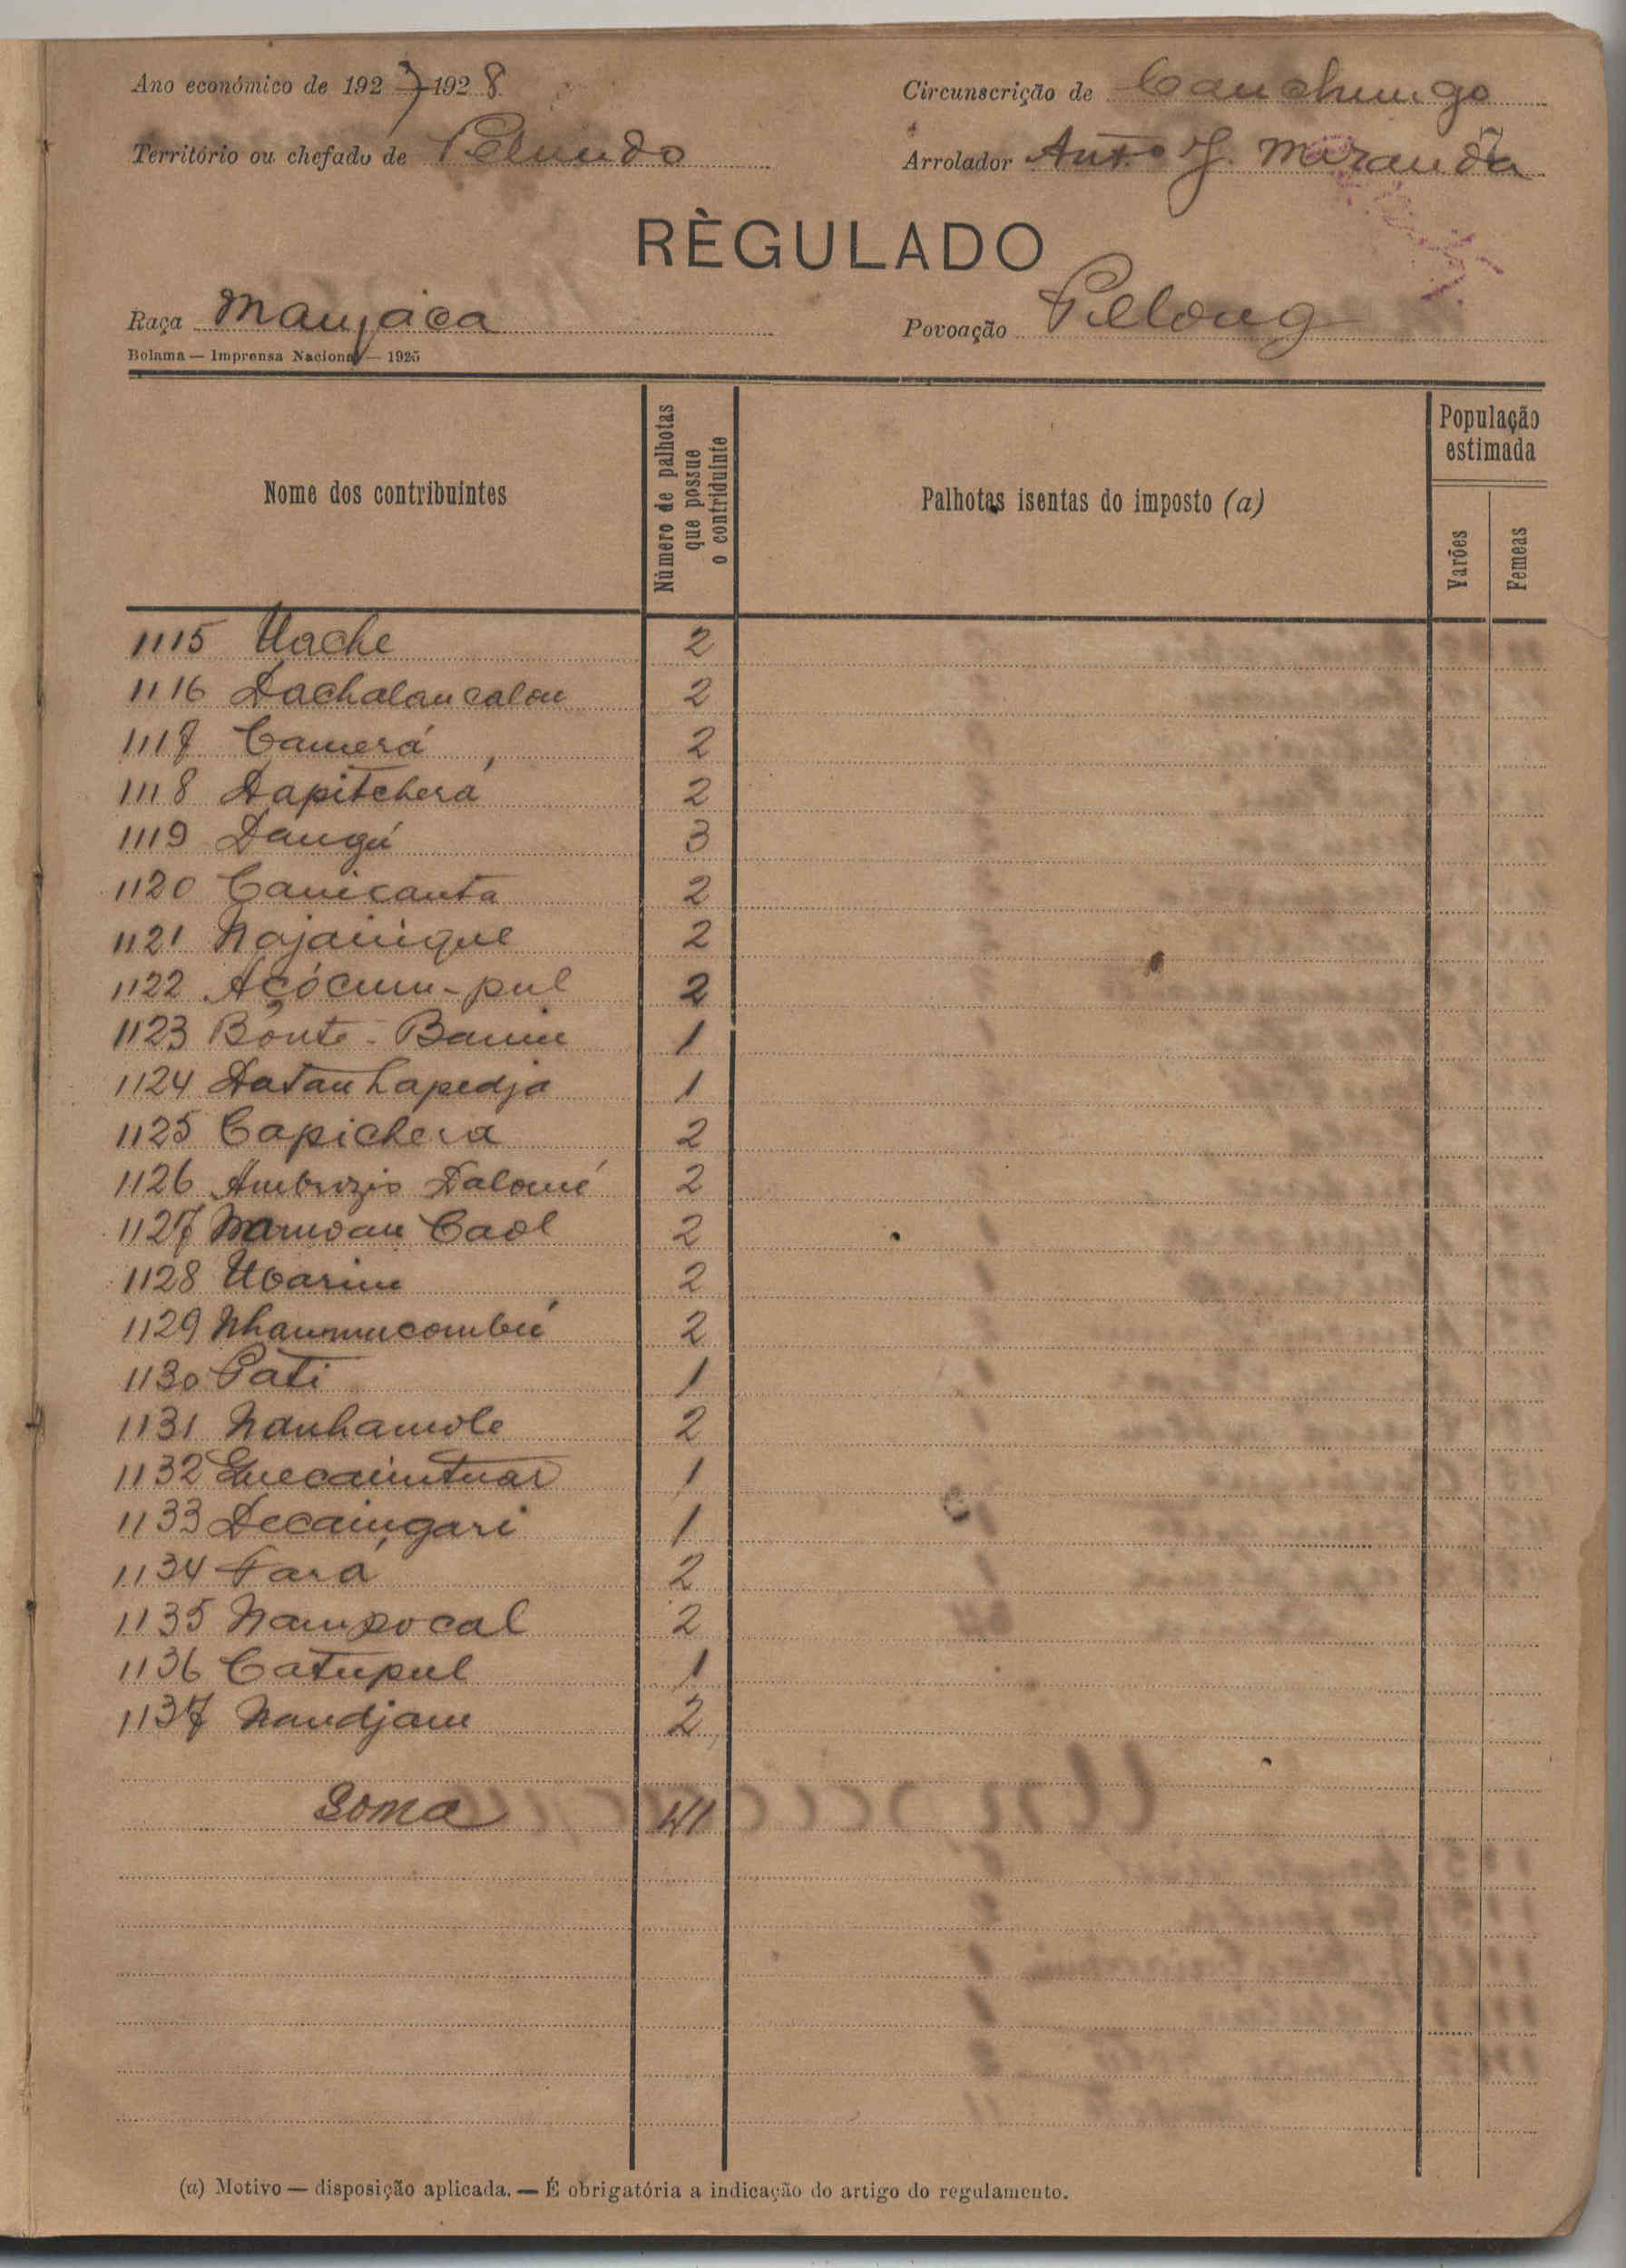 Ano económico de 1927-1928 Circunscrição de Canchungo
Território ou chefado de Pelundo Arrolador Antº J. Miranda
RÈGULADO
Raça Manjaca Povoação Pelong
Bolama — Imprensa Nacional — 1925
Nome dos contribuintes
Nùmero de palhotas
que possue
o contriduinte
Palhotas isentas do imposto (a)
População
estimada
Varões
Femeas
1115 Uache 2
1116 Dachalancalon 2
1117 Camerá 2
1118 Dapitcherá 2
1119 Dangú 3
1120 Canicanta 2
1121 Najanique 2
1122 Açócum-pul 2
1123 Bonte-Banim 1
1124 Datanhapedja 1
1125 Capichera 2
1126 Ambrozio Dalomé 2
1127 Caol 2
1128 Ubarim 2
1129 Nhanmucombú 2
1130 Pati 1
1131 Nanhamole 2
1132 1
1133 Decaingari 1
1134 Fará 2
1135 Nampocal 2
1136 Catupul 1
1137 Nandjam 2
Soma 41
(a) Motivo — disposição aplicada. — É obrigatória a indicação do artigo do regulamento.